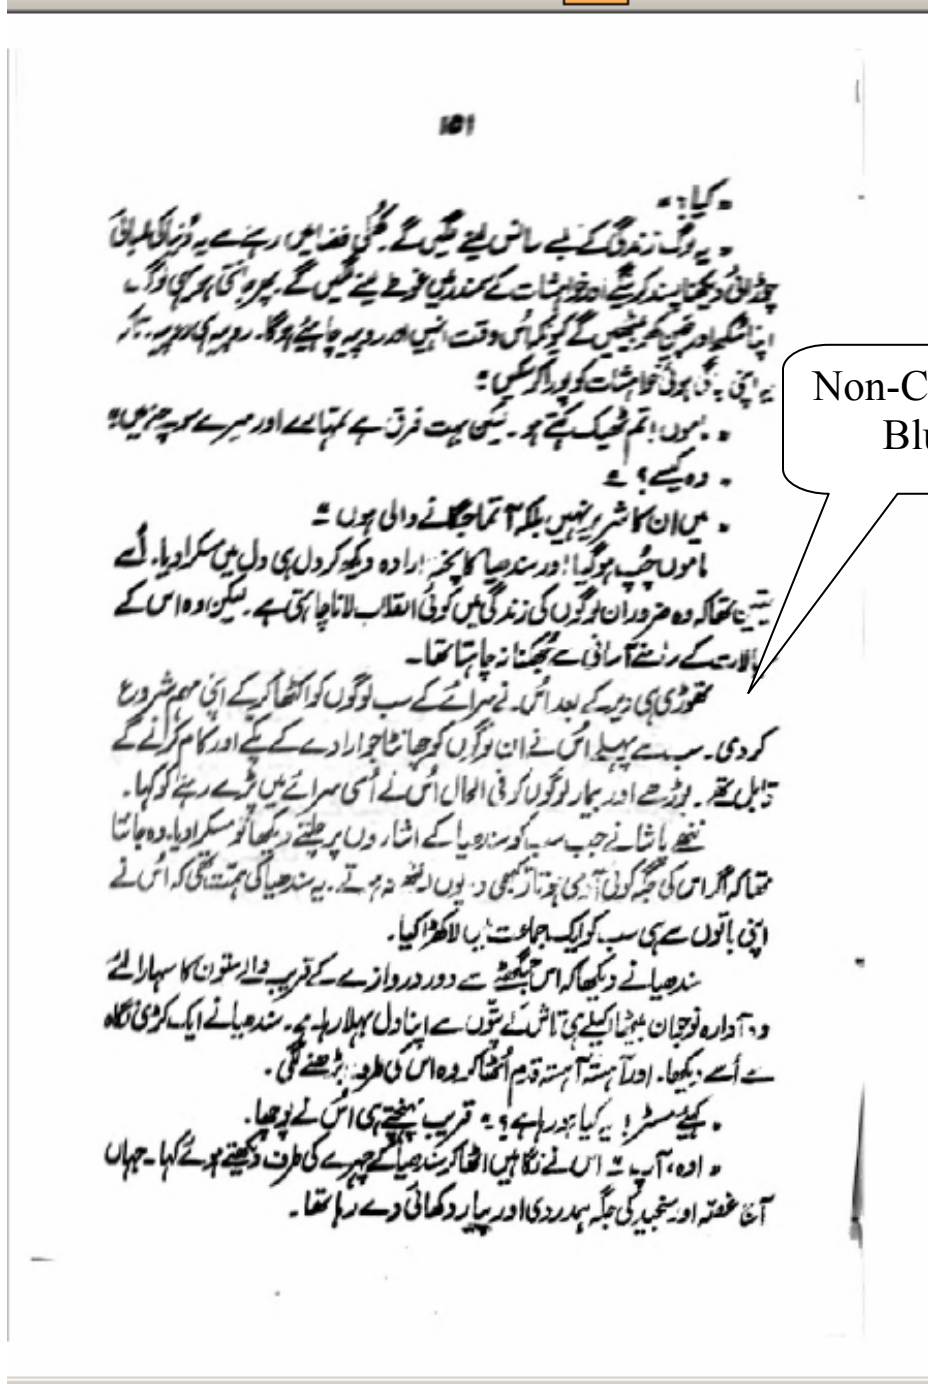 151
"کیا؟"
"یہ لوگ زندگی کے لیے سانس لینے لگیں گے۔ کھلی فضا میں رہنے سے یہ دُنیا کی لمبائی
چوڑائی دیکھنا پسند کریں گے اور خواہشات کے سمندر میں غوطے لینے لگیں گے۔ پھر
اپنا سُکھ اور چین کھو بیٹھیں گے کیونکہ اُس وقت انہیں اور روپیہ چاہیئے ہوگا۔ روپیہ ہی روپیہ۔ تاکہ
یہ اپنی ہوئی خواہشات کو پورا کر سکیں"
"ماموں! تم ٹھیک کہتے ہو۔ لیکن بہت فرق ہے تمہارے اور میرے سوچنے میں"
"وہ کیسے؟"
"میں ان کا شریر نہیں بلکہ آتما جگانے والی ہوں"
ماموں چُپ ہوگیا اور سندھیا کا پختہ ارادہ دیکھ کر دل ہی دل میں مسکرا دیا۔ اُسے
یقین تھا کہ وہ ضرور ان لوگوں کی زندگی میں کوئی انقلاب لانا چاہتی ہے۔ لیکن وہ اس کے
خیالات کے سامنے آسانی سے جُھکنا نہ چاہتا تھا۔
تھوڑی ہی دیر کے بعد اُس نے سرائے کے سب لوگوں کو اکٹھا کر کے اپنی مہم شروع
کر دی۔ سب سے پہلے اُس نے ان لوگوں کو چھانٹا جو ارادے کے پکے اور کام کرنے کے
قابل تھے۔ بوڑھے اور بیمار لوگوں کو فی الحال اُس نے اُسی سرائے میں پڑے رہنے کو کہا۔
ننھے پاشا نے جب سب کو سندھیا کے اشاروں پر چلتے دیکھا تو مسکرا دیا۔ وہ جانتا
تھا کہ اگر اس کی جگہ کوئی آدمی ہوتا تو کبھی وہ یوں اکٹھے نہ ہوتے۔ یہ سندھیا کی ہمت تھی کہ اُس نے
اپنی باتوں سے ہی سب کو ایک جماعت میں لا کھڑا کیا۔
سندھیا نے دیکھا کہ اس جمگھٹے سے دور دروازے کے قریب والے ستون کا سہارا لئے
وہ آوارہ نوجوان بیٹھا اکیلے ہی تاش کے پتّوں سے اپنا دل بہلا رہا ہے۔ سندھیا نے ایک کڑی نگاہ
سے اُسے دیکھا۔ اور آہستہ آہستہ قدم اُٹھا کر وہ اس کی طرف بڑھنے لگی۔
"کہیئے مسٹر! یہ کیا ہو رہا ہے؟" قریب پہنچتے ہی اُس نے پوچھا۔
"اوہ، آپ" اس نے نگاہیں اٹھا کر سندھیا کے چہرے کی طرف دیکھتے ہوئے کہا۔ جہاں
آج غصّہ اور سنجیدگی کی جگہ ہمدردی اور پیار دکھائی دے رہا تھا۔
Non-C
Blu